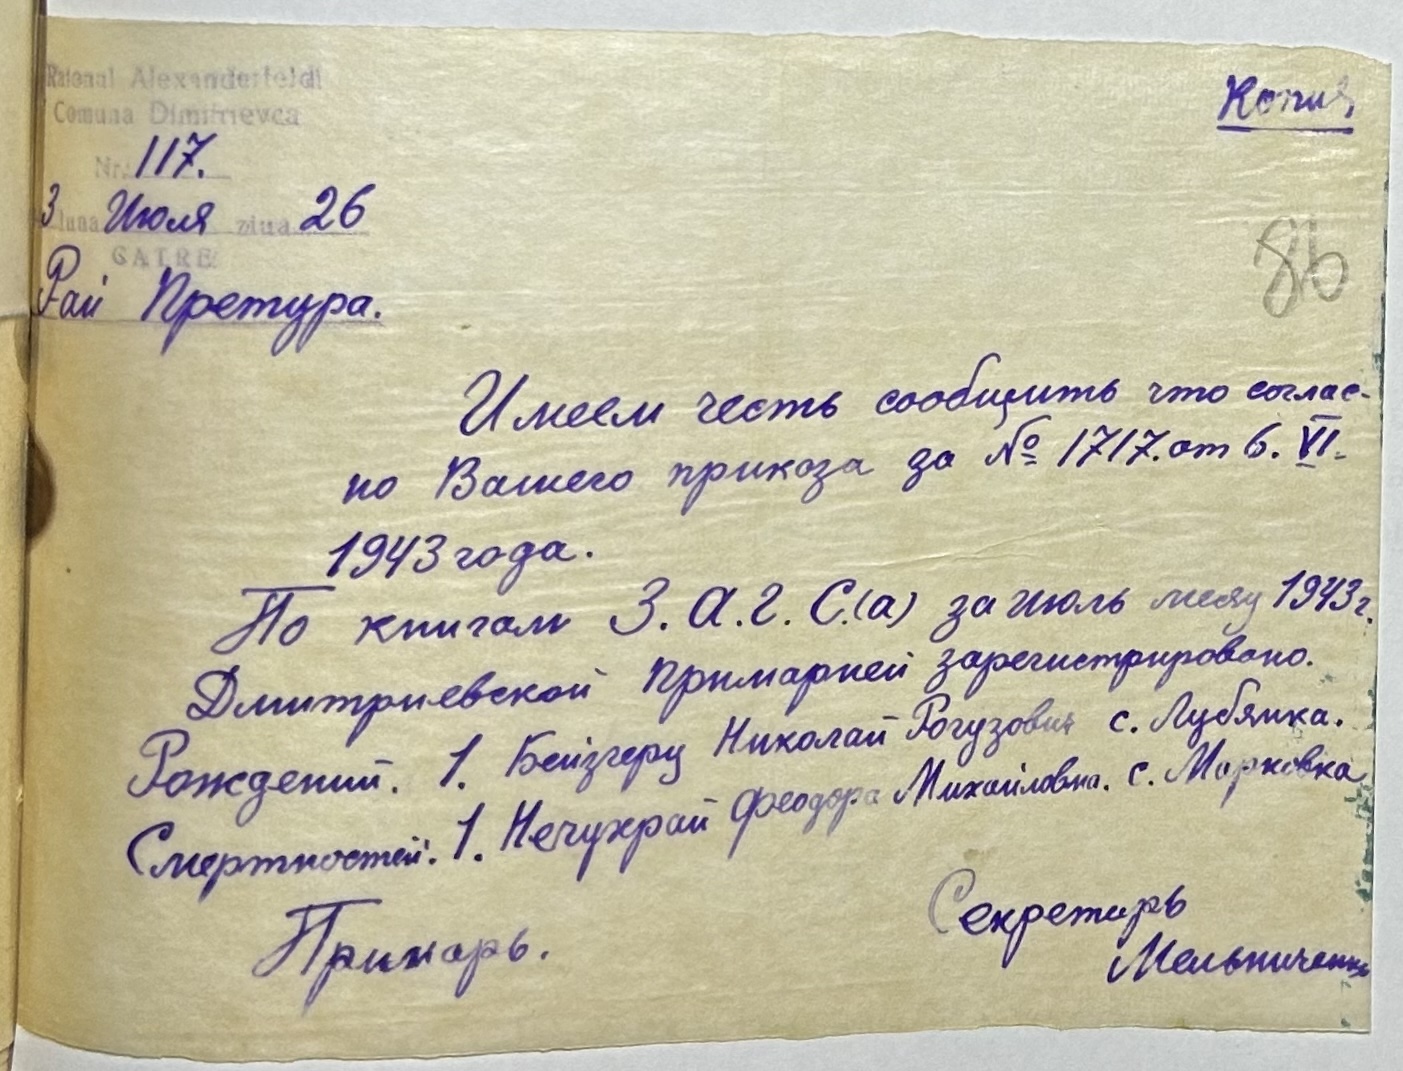 Raionul Alexanderfeldi
Comuna Dimitrievca
Копия
Nr. 117.
3 luna Июля ziua 26
CATRE
86
Рай Претура.
Имеем честь сообщить что соглас-
но Вашего приказа за № 1717. от 6. VI.
1943 года.
По книгам З. А. Г. С.(а) за июль месяц 1943 г.
Дмитриевской Примарией зарегистрировано.
Рождений. 1. Николай с. Лубянка.
Смертностей. 1. Нечухрай Феодора Михайловна. с. Марковка
Секретарь
Примарь.
Мельниченко